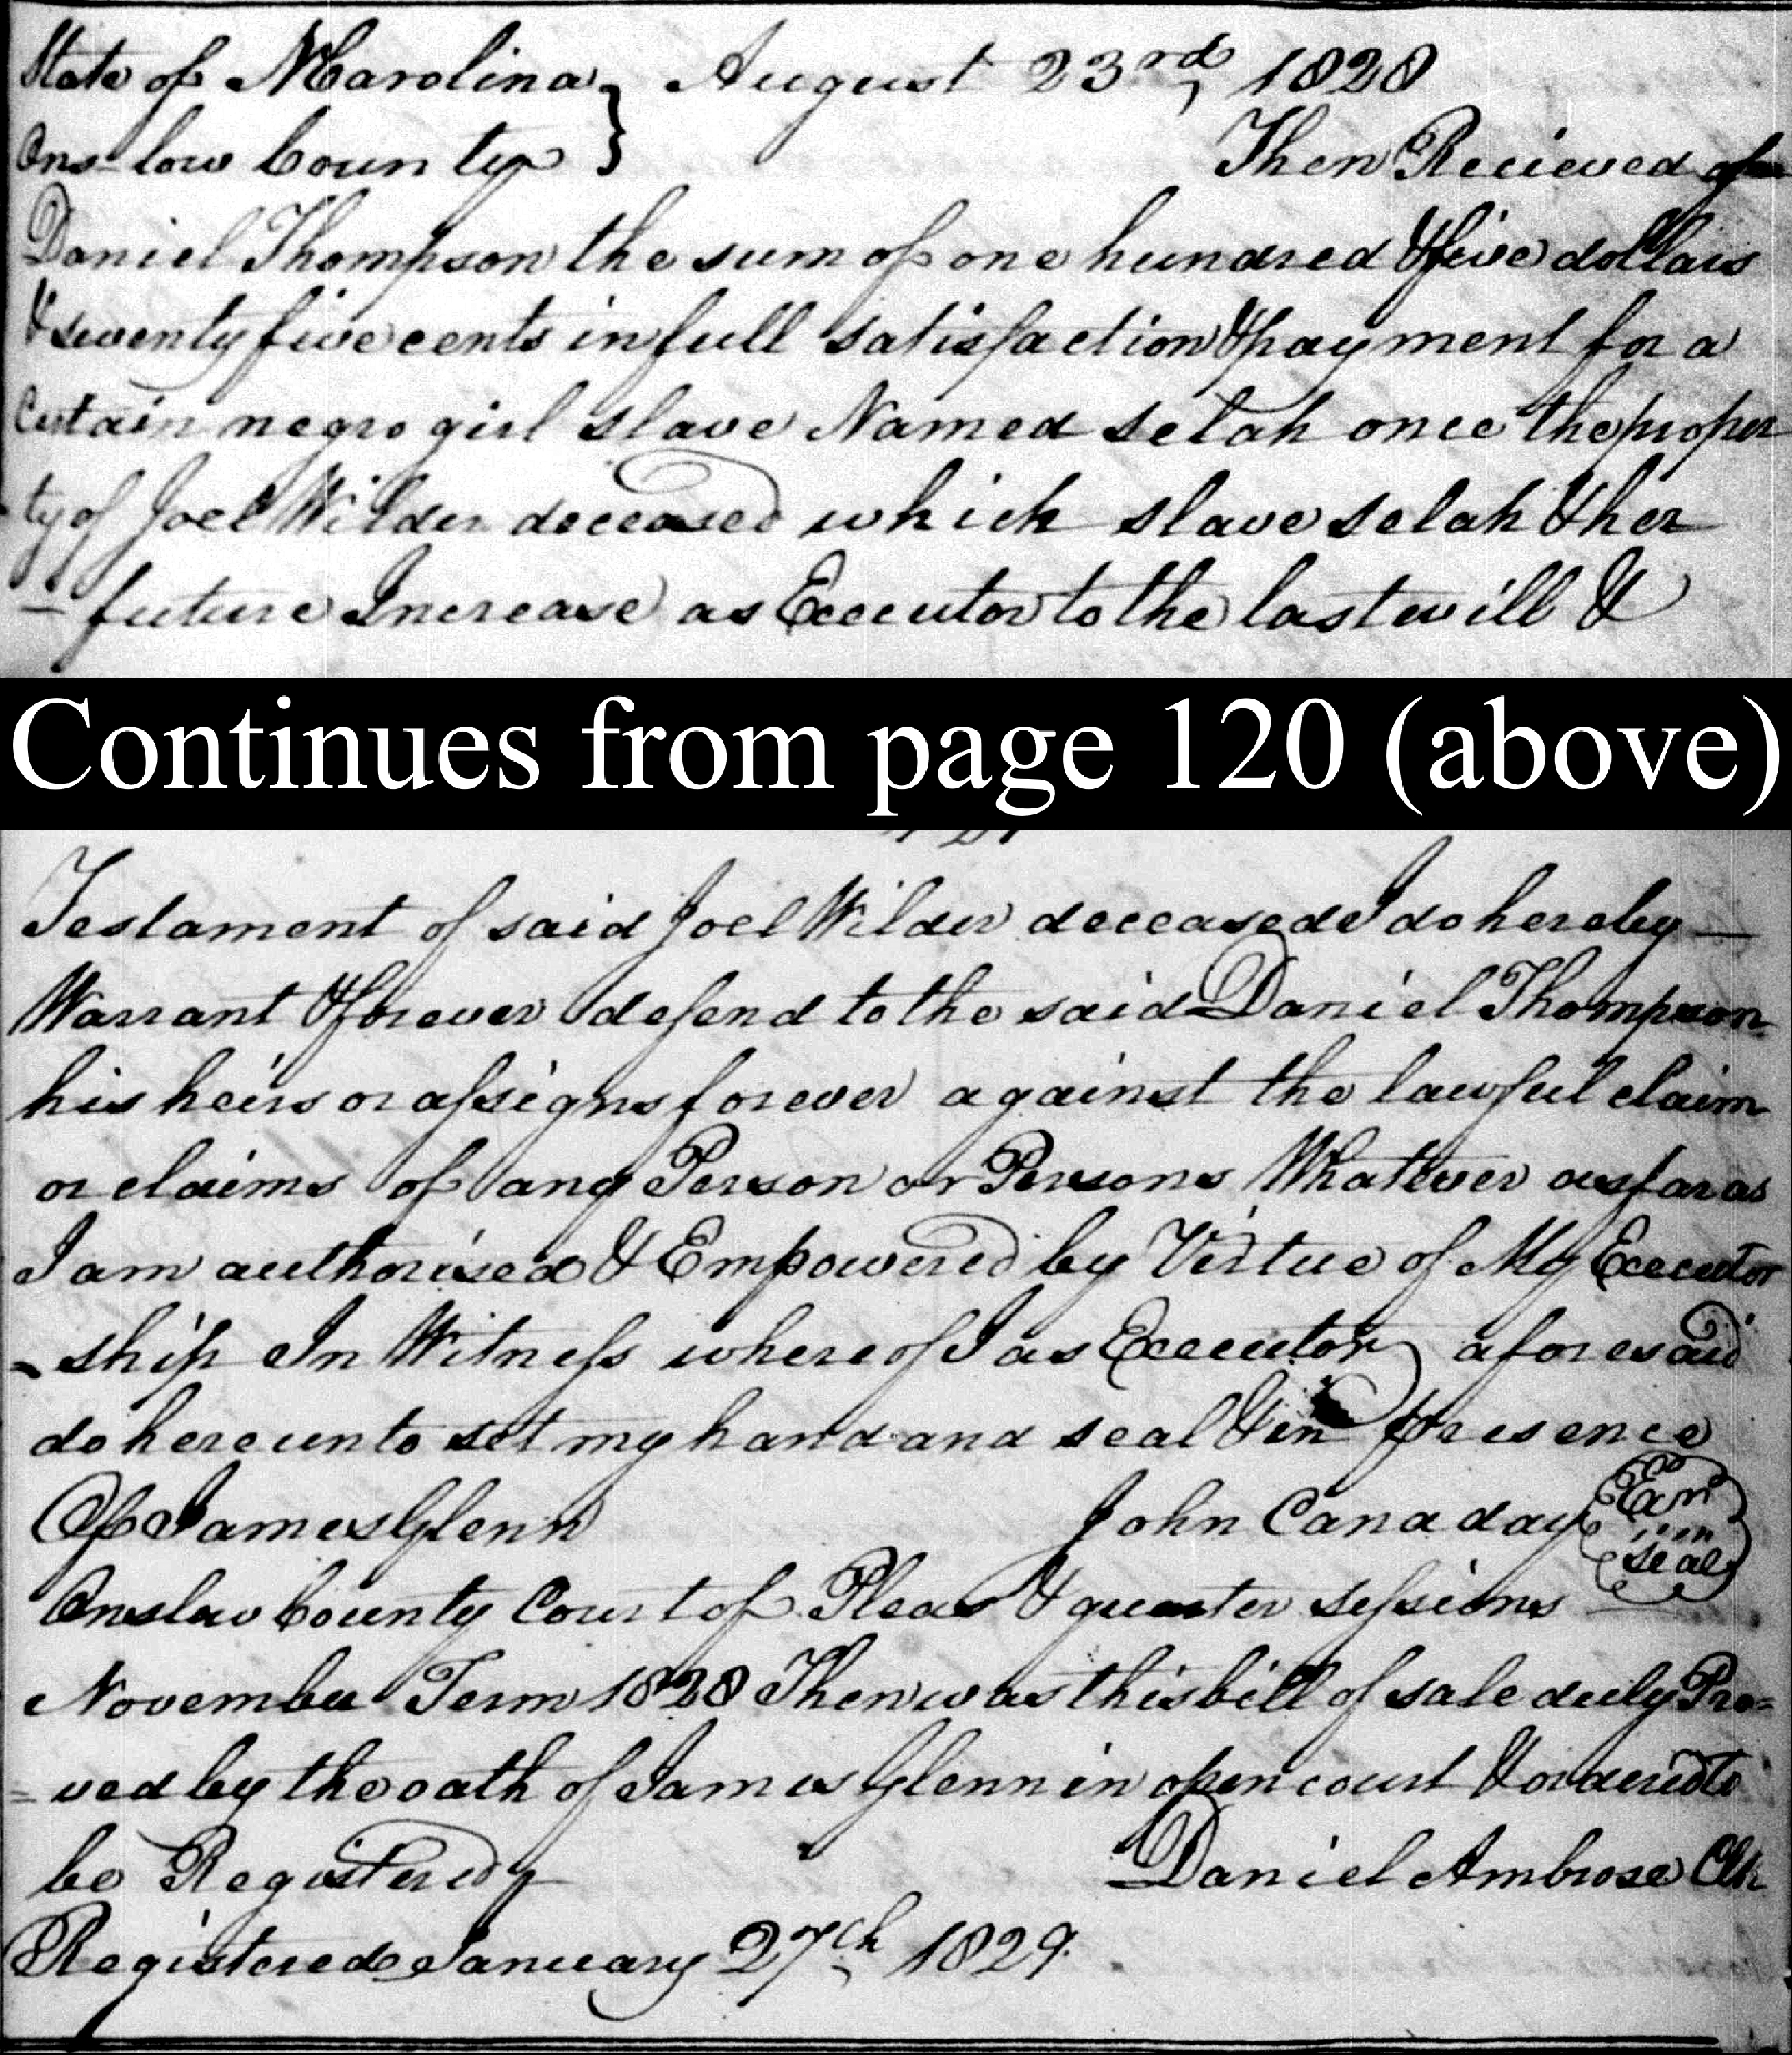 State of N Carolina } August 23rd, 1828
Onslow County } Then Recieved of
Daniel Thompson the sum of one hundred & five dollars
& seventy five cents in full satisfaction & payment for a
Certain negro girl slave Named Selah once the proper
ty of Joel Wilder deceased which slave selah & her
- future Increase as Executor to the last will &
Continues from page 120 (above)
Testament of said Joel Wilder deceased I do hereby —
Warrant & forever defend to the said Daniel Thompson
his heirs or assigns forever against the lawful claim
or claims of any Person or Persons Whatever as far as
I am authorised & Empowered by Virtue of My Executor
- ship In Witness whereof I as Executor aforesaid
do hereunto set my hand and seal & in presence
Of James Glenn John Canaday
seal
Onslow County Court of Pleas & quarter sessions
November Term 1828 Then was this bill of sale duly Pro=
= ved by the oath of James Glenn in open court & ordered to
be Registered Daniel Ambrose Clk
Registered January 27th 1829.